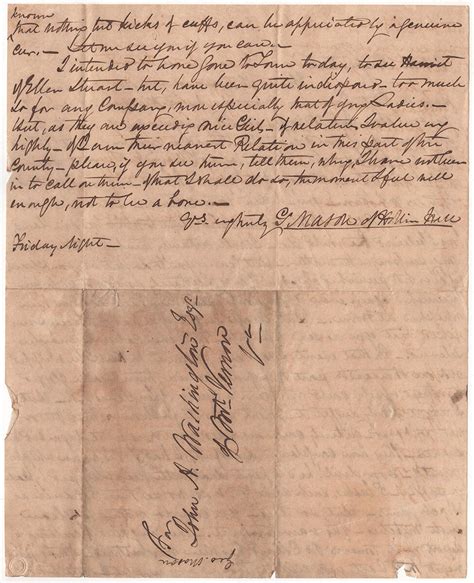 known
that nothing but kicks & cuffs, can be appreciated by a genuine
cur. — Let me see you if you can. —
I intended to have gone to Town today, to see Harriet
& Ellen Stuart — but, have been quite indisposed — too much
so for any Company, more especially that of yng Ladies. —
But, as they are exceedig nice Girls — & relatives I value vry
highly — & I am their nearest Relation in this part of the
County — please, if you see them, tell them, why, I have not been
in to call on them — & that I shall do so, the moment I feel well
enough, not to be a bore. —
Yrs. G. Mason of Hollin Hall
Friday Night —
For
John A. Washington Esqr.
of Mt. Vernon
Va